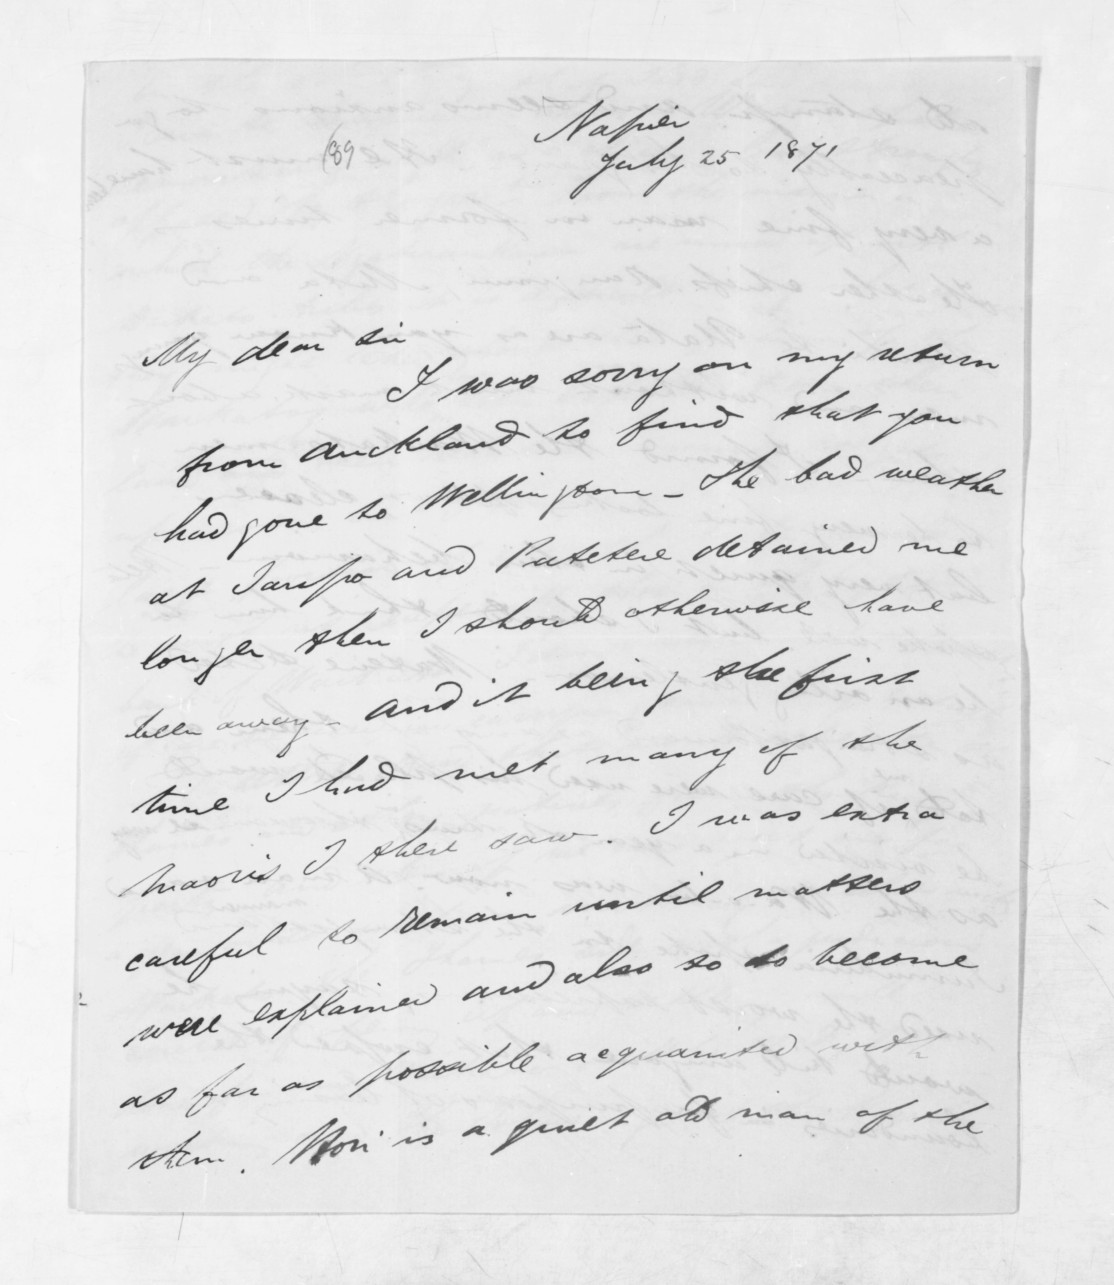 Napier
July 25 1871
(89
My dear Sir
I was sorry on my return
from Auckland to find that you
had gone to Wellington - The bad weather
at Taupo and Patetere detained me
longer then I should otherwise have
been away - and it being the first
time I had met many of the
maoris I there saw. I was extra
careful to remain until matters
were explained and also so to become
as far as possible acquainted with
them. Hori is a quiet old man of the